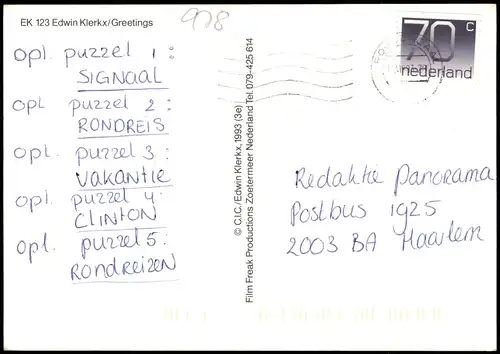 EK 123 Edwin Klerkx/Greetings
978
opl. puzzel 1:
SIGNAAL
opl puzzel 2:
RONDREIS
opl. puzzel 3:
VAKANTIE
opl. puzzel 4:
CLINTON
opl. puzzel 5:
RONDREIZEN
© C.I.C./Edwin Klerkx, 1993 (3e)
Film Freak Productions Zoetermeer Nederland Tel. 079-425 614
70 c
nederland
Redaktie panorama
Postbus 1925
2003 BA Haarlem